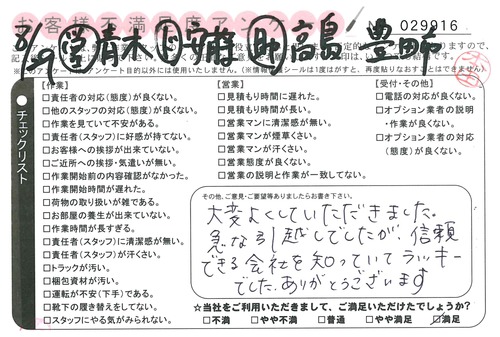 お客様不満足度アンケート
No. 029916
8/29 営 青木 作 安蒜 助 高島 豊田市
※このアンケートはアンケート目的以外には使用いたしません。(※情報保護シールは1度はがすと、再度貼りなおすことはできません)
チェックリスト
【作業】
□責任者の対応(態度)が良くない。
□他のスタッフの対応(態度)が良くない。
□作業を見ていて不安がある。
□責任者(スタッフ)に好感が持てない。
□お客様への挨拶が出来ていない。
□ご近所への挨拶・気遣いが無い。
□作業開始前の内容確認がなかった。
□作業開始時間が遅れた。
□荷物の取り扱いが雑である。
□お部屋の養生が出来ていない。
□作業時間が長すぎる。
□責任者(スタッフ)に清潔感が無い。
□責任者(スタッフ)が汗くさい。
□トラックが汚い。
□梱包資材が汚い。
□運転が不安(下手)である。
□靴下の履き替えをしてない。
□スタッフにやる気がみられない。
【営業】
□見積もり時間に遅れた。
□見積もり時間が長い。
□営業マンに清潔感が無い。
□営業マンが煙草くさい。
□営業マンが汗くさい。
□営業態度が良くない。
□営業の説明と作業が一致してない。
【受付・その他】
□電話の対応が良くない。
□オプション業者の説明・作業が良くない。
□オプション業者の対応(態度)が良くない。
その他、ご意見・ご要望等ありましたらお書き下さい。
大変よくしていただきました。
急な引越しでしたが、信頼
できる会社を知っていてラッキー
でした。ありがとうございます
☆当社をご利用いただきまして、ご満足いただけたでしょうか?
□不満 □やや不満 □普通 □やや満足 ☑満足